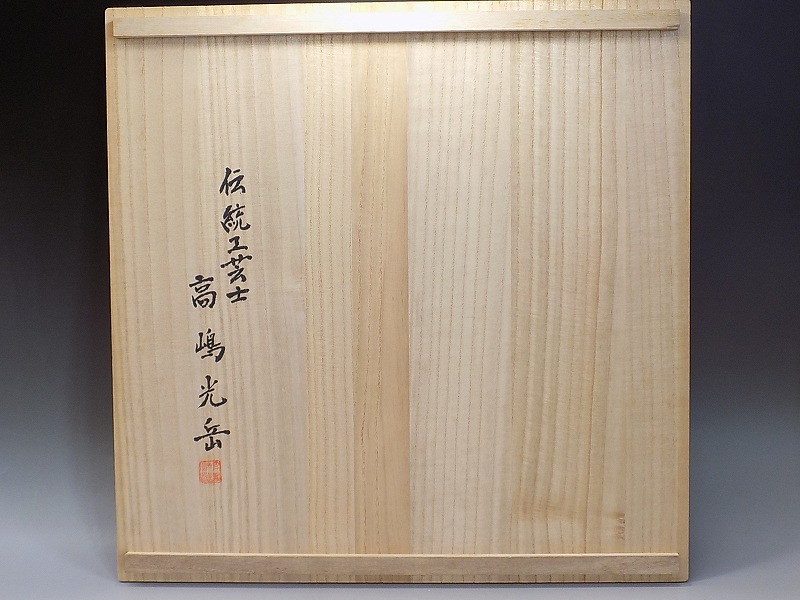 伝統工芸士
高嶋光岳